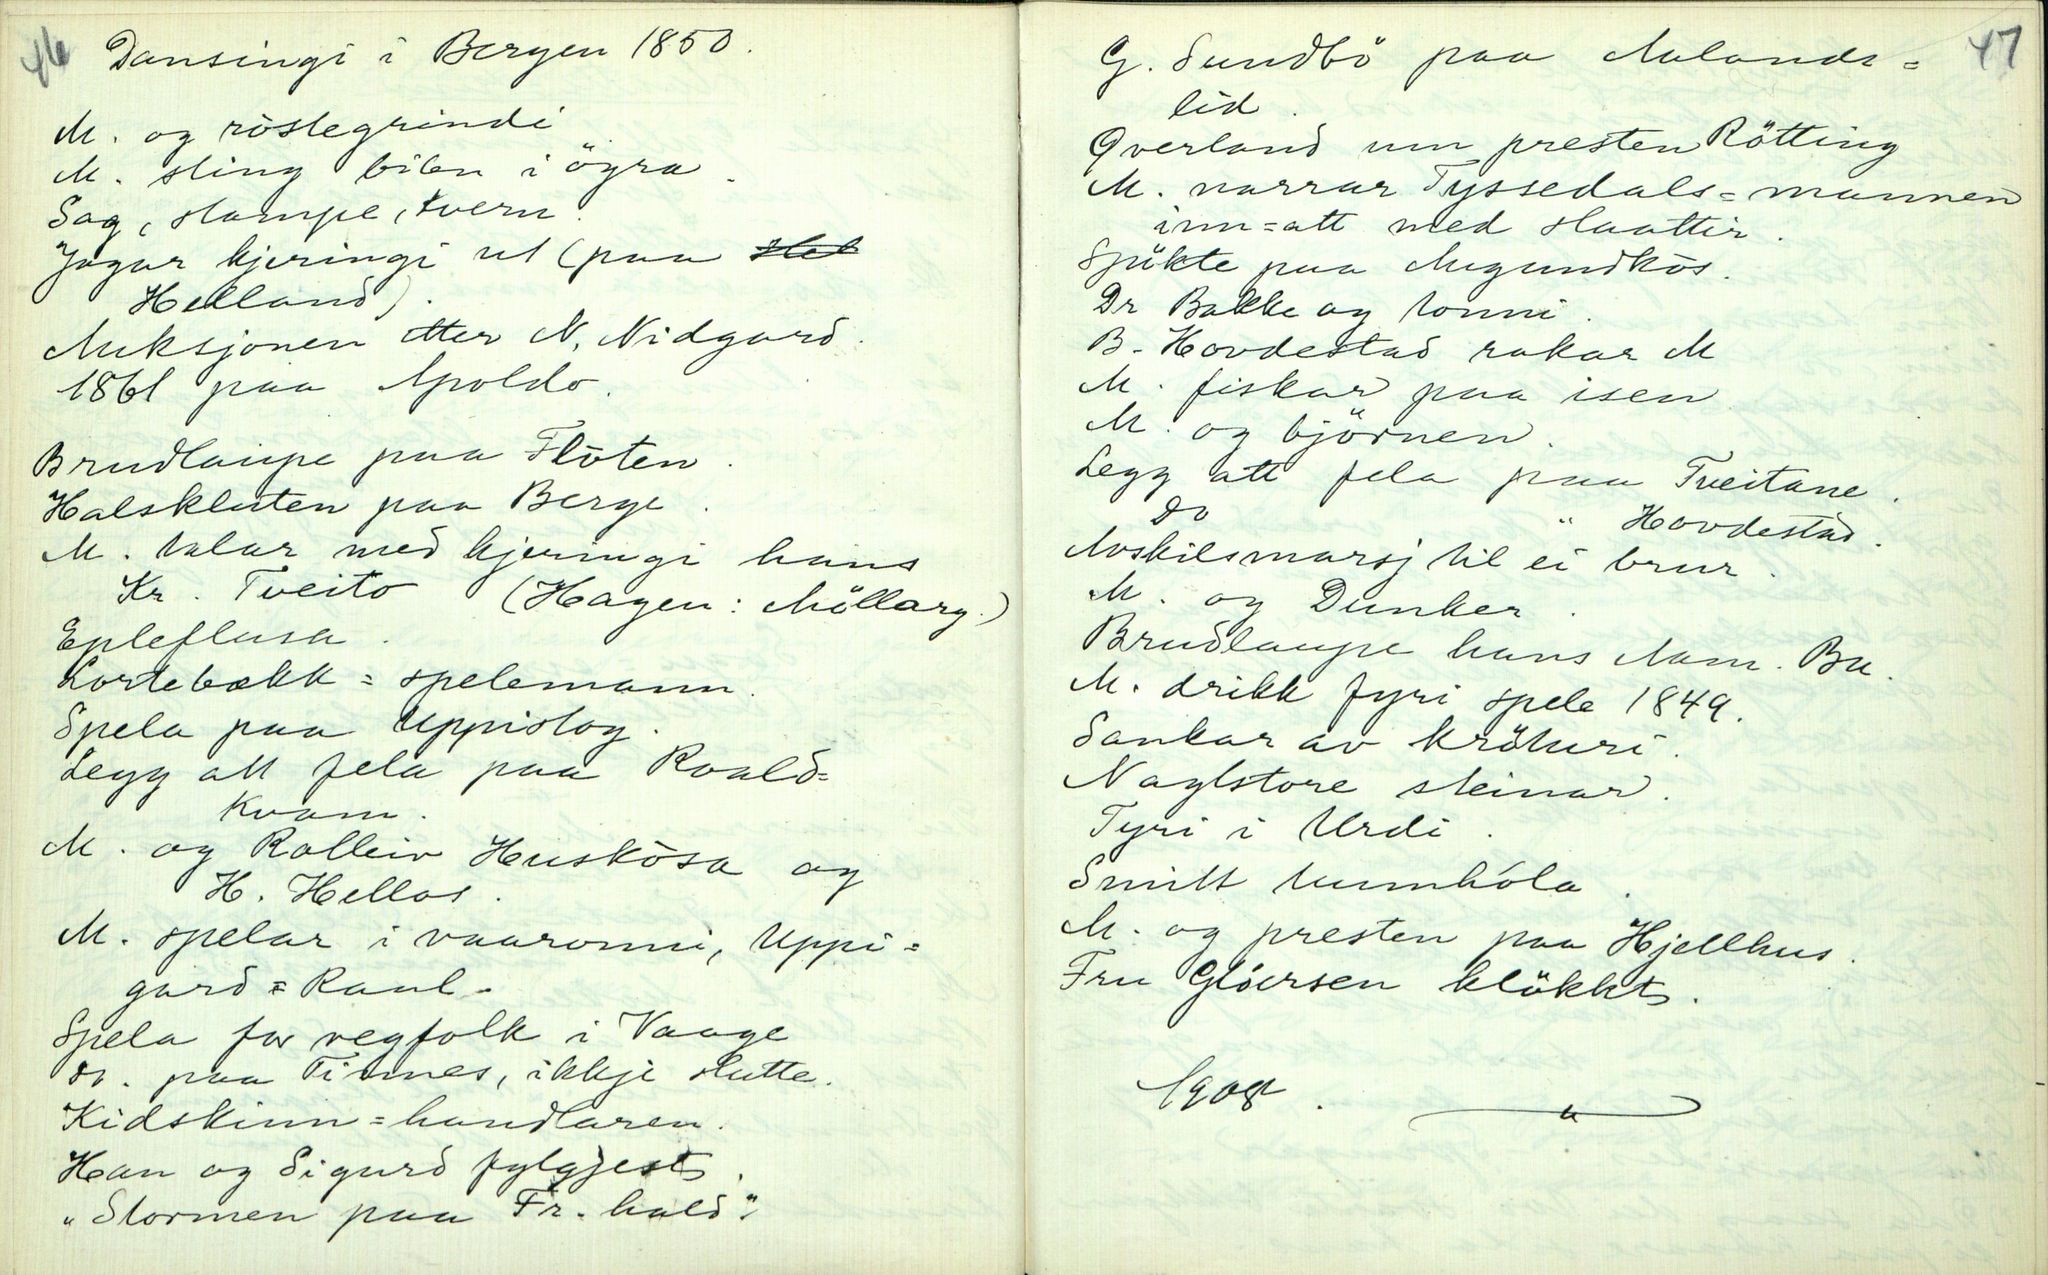 46
Dansingi i Bergen 1850.
M. og röslegrindi
M. sting bilen i ögra.
Sag, stampe, kvern.
Jagar kjeringi ut (paa
Helland).
Auksjonen etter N. Nidgard.
1861 paa Apoldo.
Brudlaupe paa Flöten.
Halskluten paa Berge.
M. talar med kjeringi hans
Kr. Tveito (Hagen: Möllarg.)
Epleflusa.
Lortebækk-spelemann.
Spela paa Uppistog.
Legg att fela paa Roald-
kvam.
M. og Rolleiv Huskösa og
H. Hellos.
M. spelar i vaaronni, Uppi-
gard-Raul.
Spela for vegfolk i Vaage
Do. paa Tinnes, ikkje slutte.
Kidskinn-handlaren.
Han og Sigurd fylgjest.
"Stormen paa Fr. hald".
47
G. Sundbö paa Aalands-
lid.
Qverland um presten Rötting
M. narrar Tyssedals-mannen
inn-att med slaattir.
Spökte paa Mogundkös.
Dr Bakke og tonni.
B. Hovdestad rakar M
M. fiskar paa isen
M. og björnen.
Legg att fela paa Tveitane.
Do " Hovdestad.
Avskilsmarsj til ei brur.
M. og Dunker.
Brudlaupe hans Aam. Bu.
M. drikk fyri spele 1849.
Sankar av kröturi.
Naglstore steinar.
Tyri i Urdi.
Smitt tumhola.
M. og presten paa Hjellhus.
Fru Glöersen klökkt.
1908.